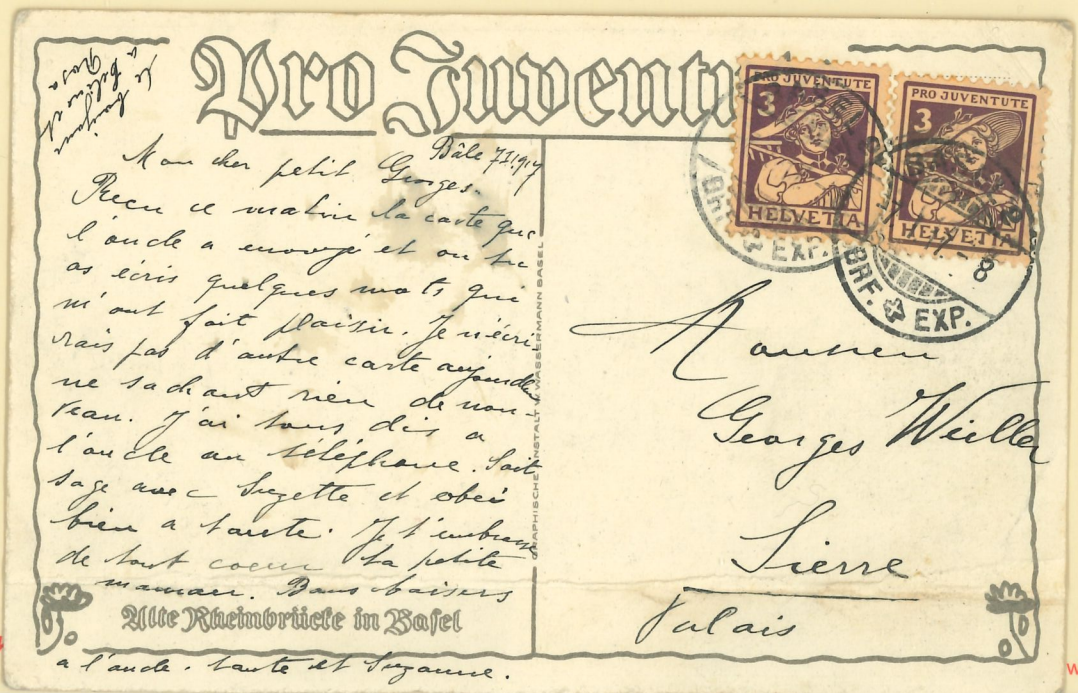 Pro Juventu
Bâle 7 I 1917
Mon cher petit Georges.
Reçu ce matin la carte que
l'oncle a envoyé et ou tu
as écris quelques mots qui
m'ont fait plaisir. Je n'écri-
rais pas d'autre carte aujourd'hui
ne sachant rien de nou-
veau. J'ai tous dis a
l'oncle au téléphone. Soit
sage avec Suzette et obei
bien a tante. Je t'embrasse
de tout coeur ta petite
maman. Bons baisers
Alte Rheinbrücke in Basel
a l'oncle. tante et Suzanne.
bonjour
a
et
Rosa
GRAPHISCHE ANSTALT W. WASSERMANN BASEL
PRO JUVENTUTE
3
HELVETIA
PRO JUVENTUTE
3
HELVETIA
BRF. EXP.
BRF. EXP.
Monsieur
Georges Wieller
Sierre
Valais